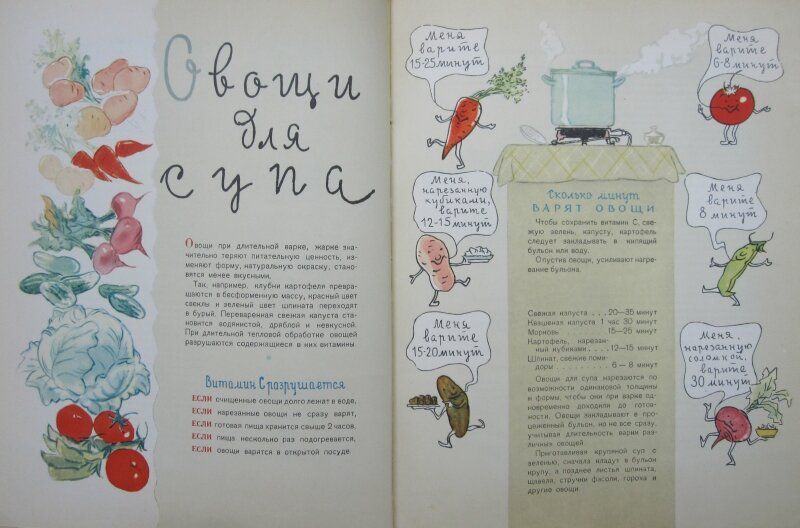 Овощи
для
супа
Овощи при длительной варке, жарке зна-
чительно теряют питательную ценность, из-
меняют форму, натуральную окраску, стано-
вятся менее вкусными.
Так, например, клубни картофеля превра-
щаются в бесформенную массу, красный цвет
свеклы и зеленый цвет шпината переходят
в бурый. Переваренная свежая капуста ста-
новится водянистой, дряблой и невкусной.
При длительной тепловой обработке овощей
разрушаются содержащиеся в них витамины.
Витамин С разрушается
ЕСЛИ очищенные овощи долго лежат в воде,
ЕСЛИ нарезанные овощи не сразу варят,
ЕСЛИ готовая пища хранится свыше 2 часов,
ЕСЛИ пища несколько раз подогревается,
ЕСЛИ овощи варятся в открытой посуде.
Меня
варите
15-25 минут
Меня
варите
6-8 минут
Меня,
нарезанную
кубиками,
варите
12-15 минут
Меня
варите
8 минут
Меня
варите
15-20 минут
Меня,
нарезанную
соломкой,
варите
30 минут
Сколько минут
ВАРЯТ ОВОЩИ
Чтобы сохранить витамин С, све-
жую зелень, капусту, картофель
следует закладывать в кипящий
бульон или воду.
Опустив овощи, усиливают нагре-
вание бульона.
Свежая капуста . . . 20—35 минут
Квашеная капуста 1 час 30 минут
Морковь . . . 15—25 минут
Картофель, нарезан-
ный кубиками . . . 12—15 минут
Шпинат, свежие поми-
доры . . . 6—8 минут
Овощи для супа нарезаются по
возможности одинаковой толщины
и формы, чтобы они при варке од-
новременно доходили до готов-
ности. Овощи закладывают в про-
цеженный бульон, но не все сразу,
учитывая длительность варки раз-
личных овощей.
Приготавливая крупяной суп с
зеленью, сначала кладут в бульон
крупу, а позднее листья шпината,
щавеля, стручки фасоли, гороха и
другие овощи.